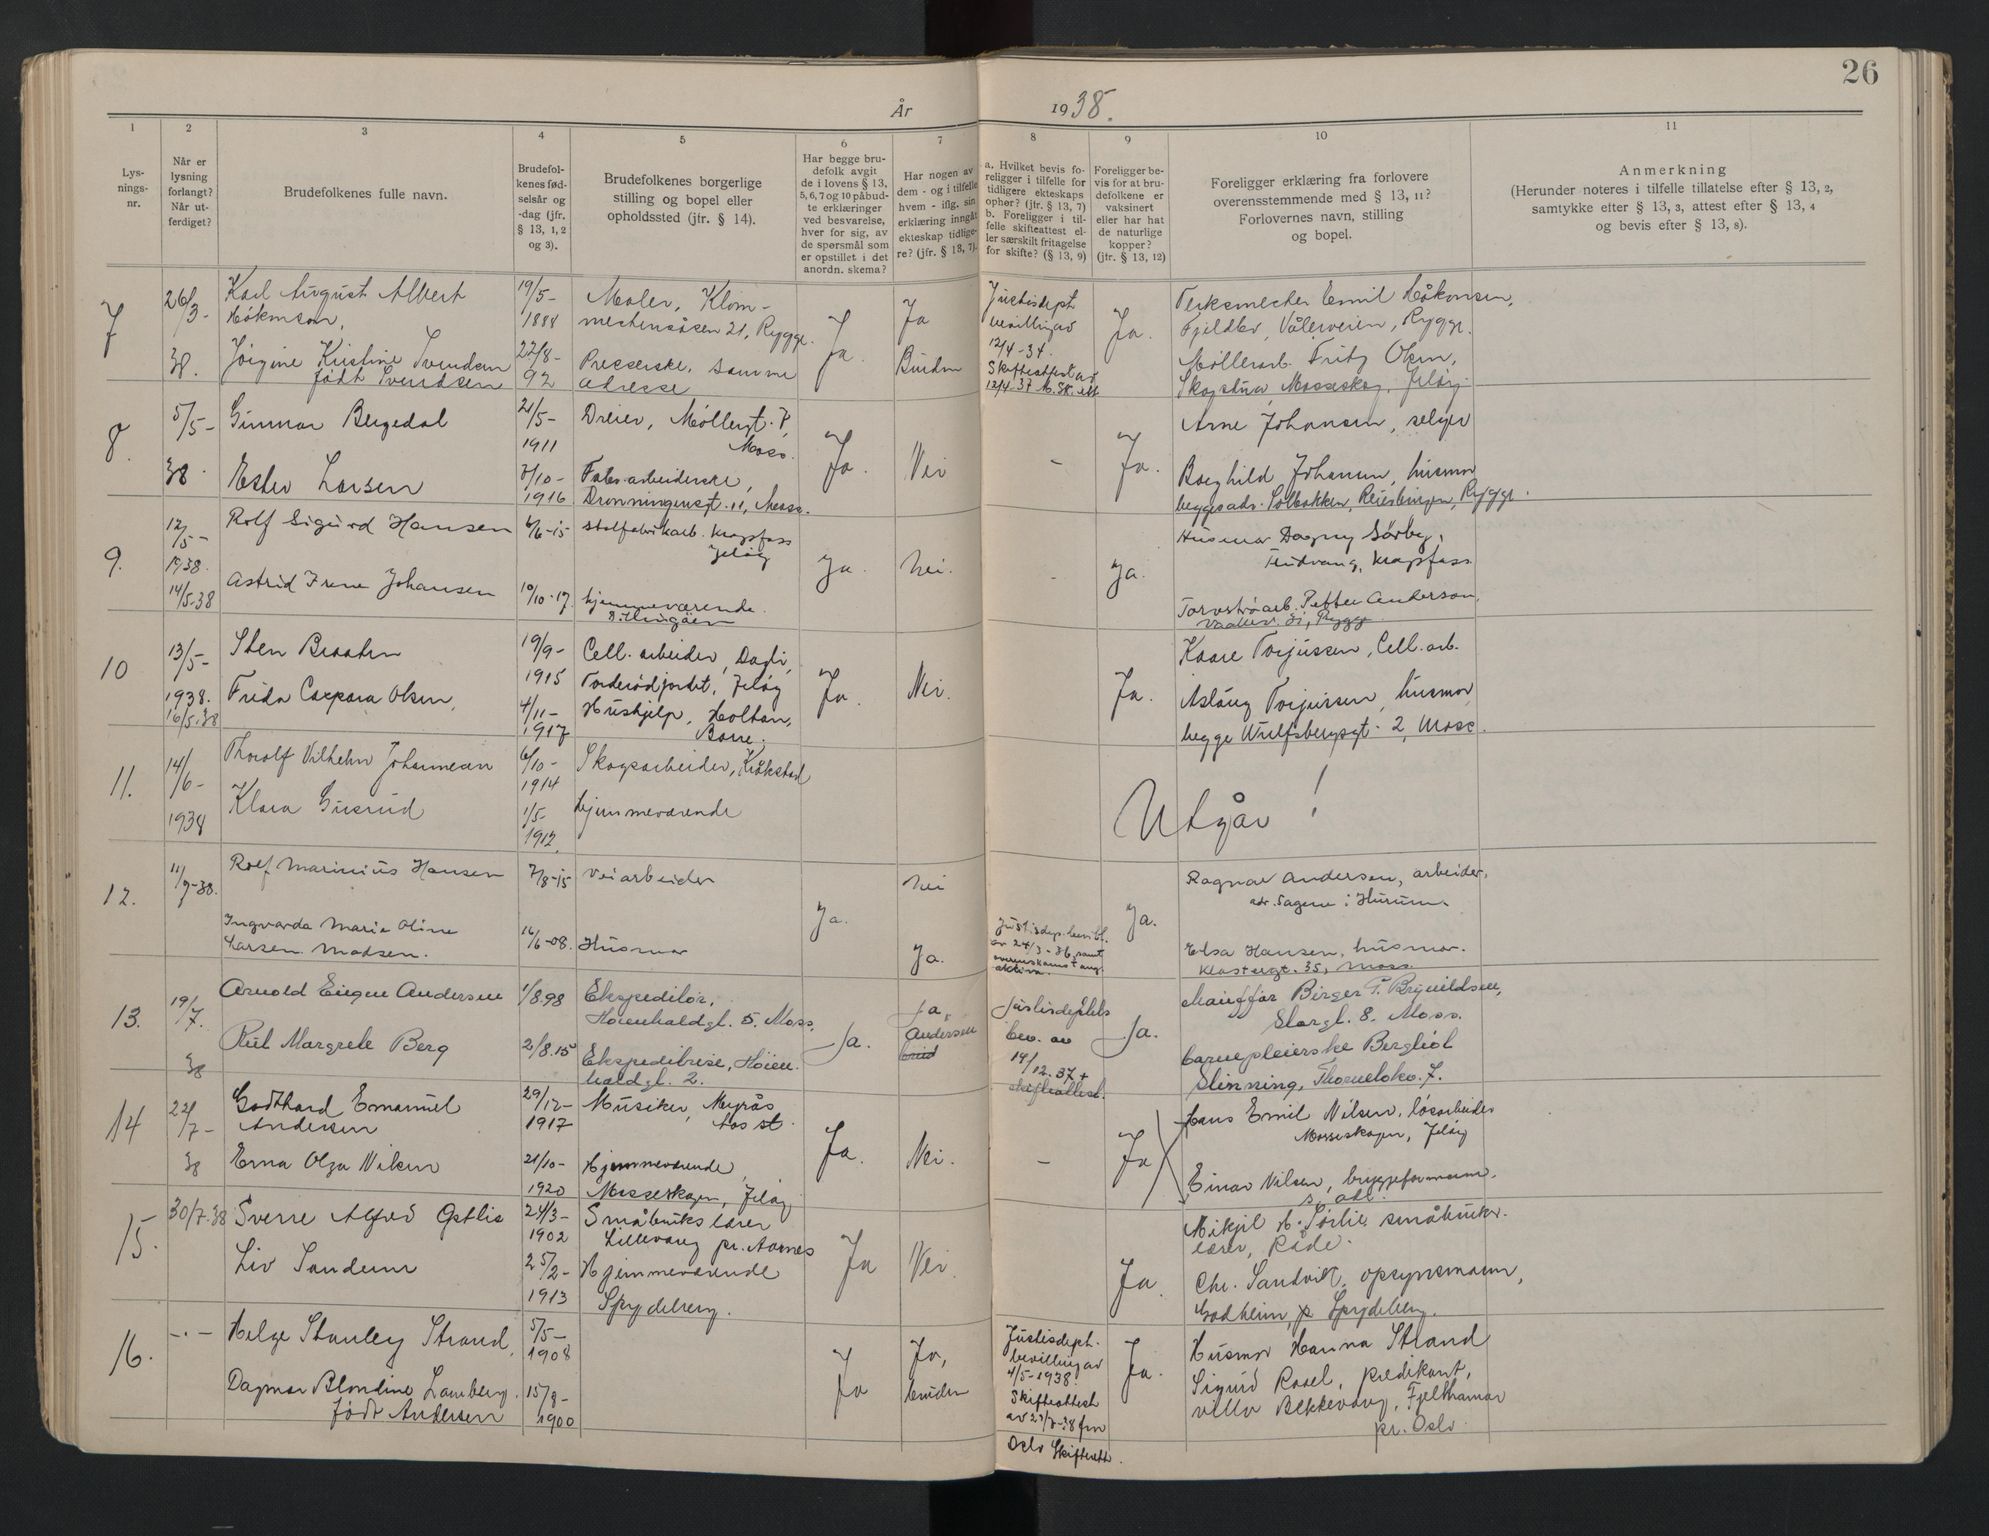 26
År 1938.
1 2 3 4 5 6 7 8 9 10 11
Lys-
nings-
nr.
Når er
lysning
forlangt?
Når ut-
ferdiget?
Brudefolkenes fulle navn.
Brudefol-
kenes fød-
selsår og
-dag (jfr.
§ 13, 1, 2
og 3).
Brudefolkenes borgerlige
stilling og bopel eller
opholdssted (jfr. § 14).
Har begge bru-
defolk avgit
de i lovens § 13,
5, 6, 7 og 10 påbud-
te erklæringer
ved besvarelse,
hver for sig, av
de spørsmål som
er opstillet i det
anordn. skema?
Har nogen av
dem - og i tilfelle
hvem - iflg. sin
erklæring inngått
ekteskap tidlige-
re? (jfr. § 13, 7).
a. Hvilket bevis fo-
religger i tilfelle for
tidligere ekteskaps
opher? (jfr. § 13, 7)
b. Foreligger i til-
felle skifteattest el-
ler særskilt fritagelse
for skifte? (§ 13, 9)
Foreligger be-
vis for at bru-
defolkene er
vaksinert
eller har hat
de naturlige
kopper?
(jfr. § 13, 12)
Foreligger erklæring fra forlovere
overensstemmende med § 13, 11?
Forlovernes navn, stilling
og bopel.
Anmerkning
(Herunder noteres i tilfelle tillatelse efter § 13, 2,
samtykke efter § 13, 3, attest efter § 13, 4
og bevis efter § 13, 8).
7
26/3-
38.
Karl August Albert
Håkonson,
Jørgine Kristine Svendsen
født Svendsen
19/5-
1888
22/8-
92
Maler, Klom-
mestensåsen 21, Rygge.
Presserske, samme
adresse
Ja.
Ja
Bruden
Justisdept
bevilling av
12/4-34.
Skifteattest av
12/4-37
Ja.
Verksmester Emil Håkonsen,
Fjeldbo, Vålerveien, Rygge.
Møllerarb. Fritz Olsen,
Skogstua, Mosseskog, Jeløy.
8.
5/5-
38.
Gunnar Bergedal
Ester Larsen
21/5-
1911
7/10-
1916
Dreier, Møllergt. 7,
Moss.
Fabr.arbeiderske,
Dronningensgt. 11, Moss.
Ja.
Nei
-
Ja.
Arne Johansen, selger
Borghild Johansen, husmor
begges adr. Solbakken, Rygge.
9.
12/5-
1938.
14/5-38
Rolf Sigurd Hansen
Astrid Irene Johansen
6/6-15
10/10-17.
Stolfabrikarb. Krapfoss
Jeløy
hjemmeværende.
Dillingöen
Ja.
Nei.
-
Ja.
Husmor Dagny Sørby,
Krapfoss
Torvstrøarb. Petter Anderson,
Rygge
10
13/5-
1938.
16/5.38
Sten Braaten
Frida Caspara Olsen,
19/9-
1915
4/11-
1917
Cell. arbeider,
Torderødjordet, Jeløy
Hushjelp, Holtan,
Borre.
Ja.
Nei.
Ja.
Kaare Torjussen, Cell. arb.
Aslaug Torjussen, husmor
begge Wulfsbergsgt. 2, Moss.
11.
14/6-
1938
Thorolf Vilhelm Johannesen
Klara Gusrud
6/10-
1914
1/5-
1912.
Skogsarbeider, Kråkstad
hjemmeværende
Utgår!
12.
11/7-38.
Rolf Marinius Hansen
Ingvarda Marie Oline
Larsen Madsen.
7/8-15
16/6-08.
Veiarbeider
Husmor
Ja.
Nei
Ja.
Justisdep. bevill.
av 24/3-36 samt
Ja.
Ragnar Andersen, arbeider,
adr. Sagene i Hurum.
Elsa Hansen, husmor.
Klostergt. 35, Moss.
13.
19/7.
38
Arnold Eugen Andersen
Rut Margrete Berg
1/8.98
2/8.15
Ekspeditør,
Høienhaldgt. 5. Moss.
Ekspeditrise, Høien-
haldgt. 2.
Ja.
Ja,
Andersen
Justisdeptets
bev. av
14/12.37 +
skifteattest.
Ja.
Chauffør Birger T. Brynildsen,
Storgt. 8. Moss.
barnepleierske Bergliot
Slinning, Thorneløkv. 7.
14
22/7-
38
Godthard Emanuel
Andersen
Erna Olga Nilsen
29/12-
1917
21/10-
1920
Musiker, Myrås
Aas st.
Hjemmeværende,
Mosseskogen, Jeløy
Ja.
Nei.
-
Ja
Hans Emil Nilsen, løsarbeider
Mosseskogen, Jeløy
Einar Nilsen, bryggeformann.
s. adr.
15.
30/7.38
Sverre Alfred Østlie
Liv Sandem
24/3-
1902
25/2-
1913
Småbrukslærer
Lillevang pr. Aarnes
Hjemmeværende
Spydeberg.
Ja
Nei.
Ja.
Mikjil H. Sørlie småbruks-
lærer, Råde.
Chr. Sandvik, opsynsmann,
Godheim, p. Spydeberg.
16.
-.-
Helge Stanley Strand,
Dagmar Blondine Lamberg.
født Andersen
5/5-
1908
15/8-
1900
Ja
Ja,
bruden
Justisdept.
bevilling av
4/5-1938.
Skifteattest
av 27/7-38 fra
Oslo Skifterett.
Ja.
Husmor Hanna Strand
Sigurd Rosel, predikant,
villa Bekkevang, Fjellhamar
pr. Oslo.